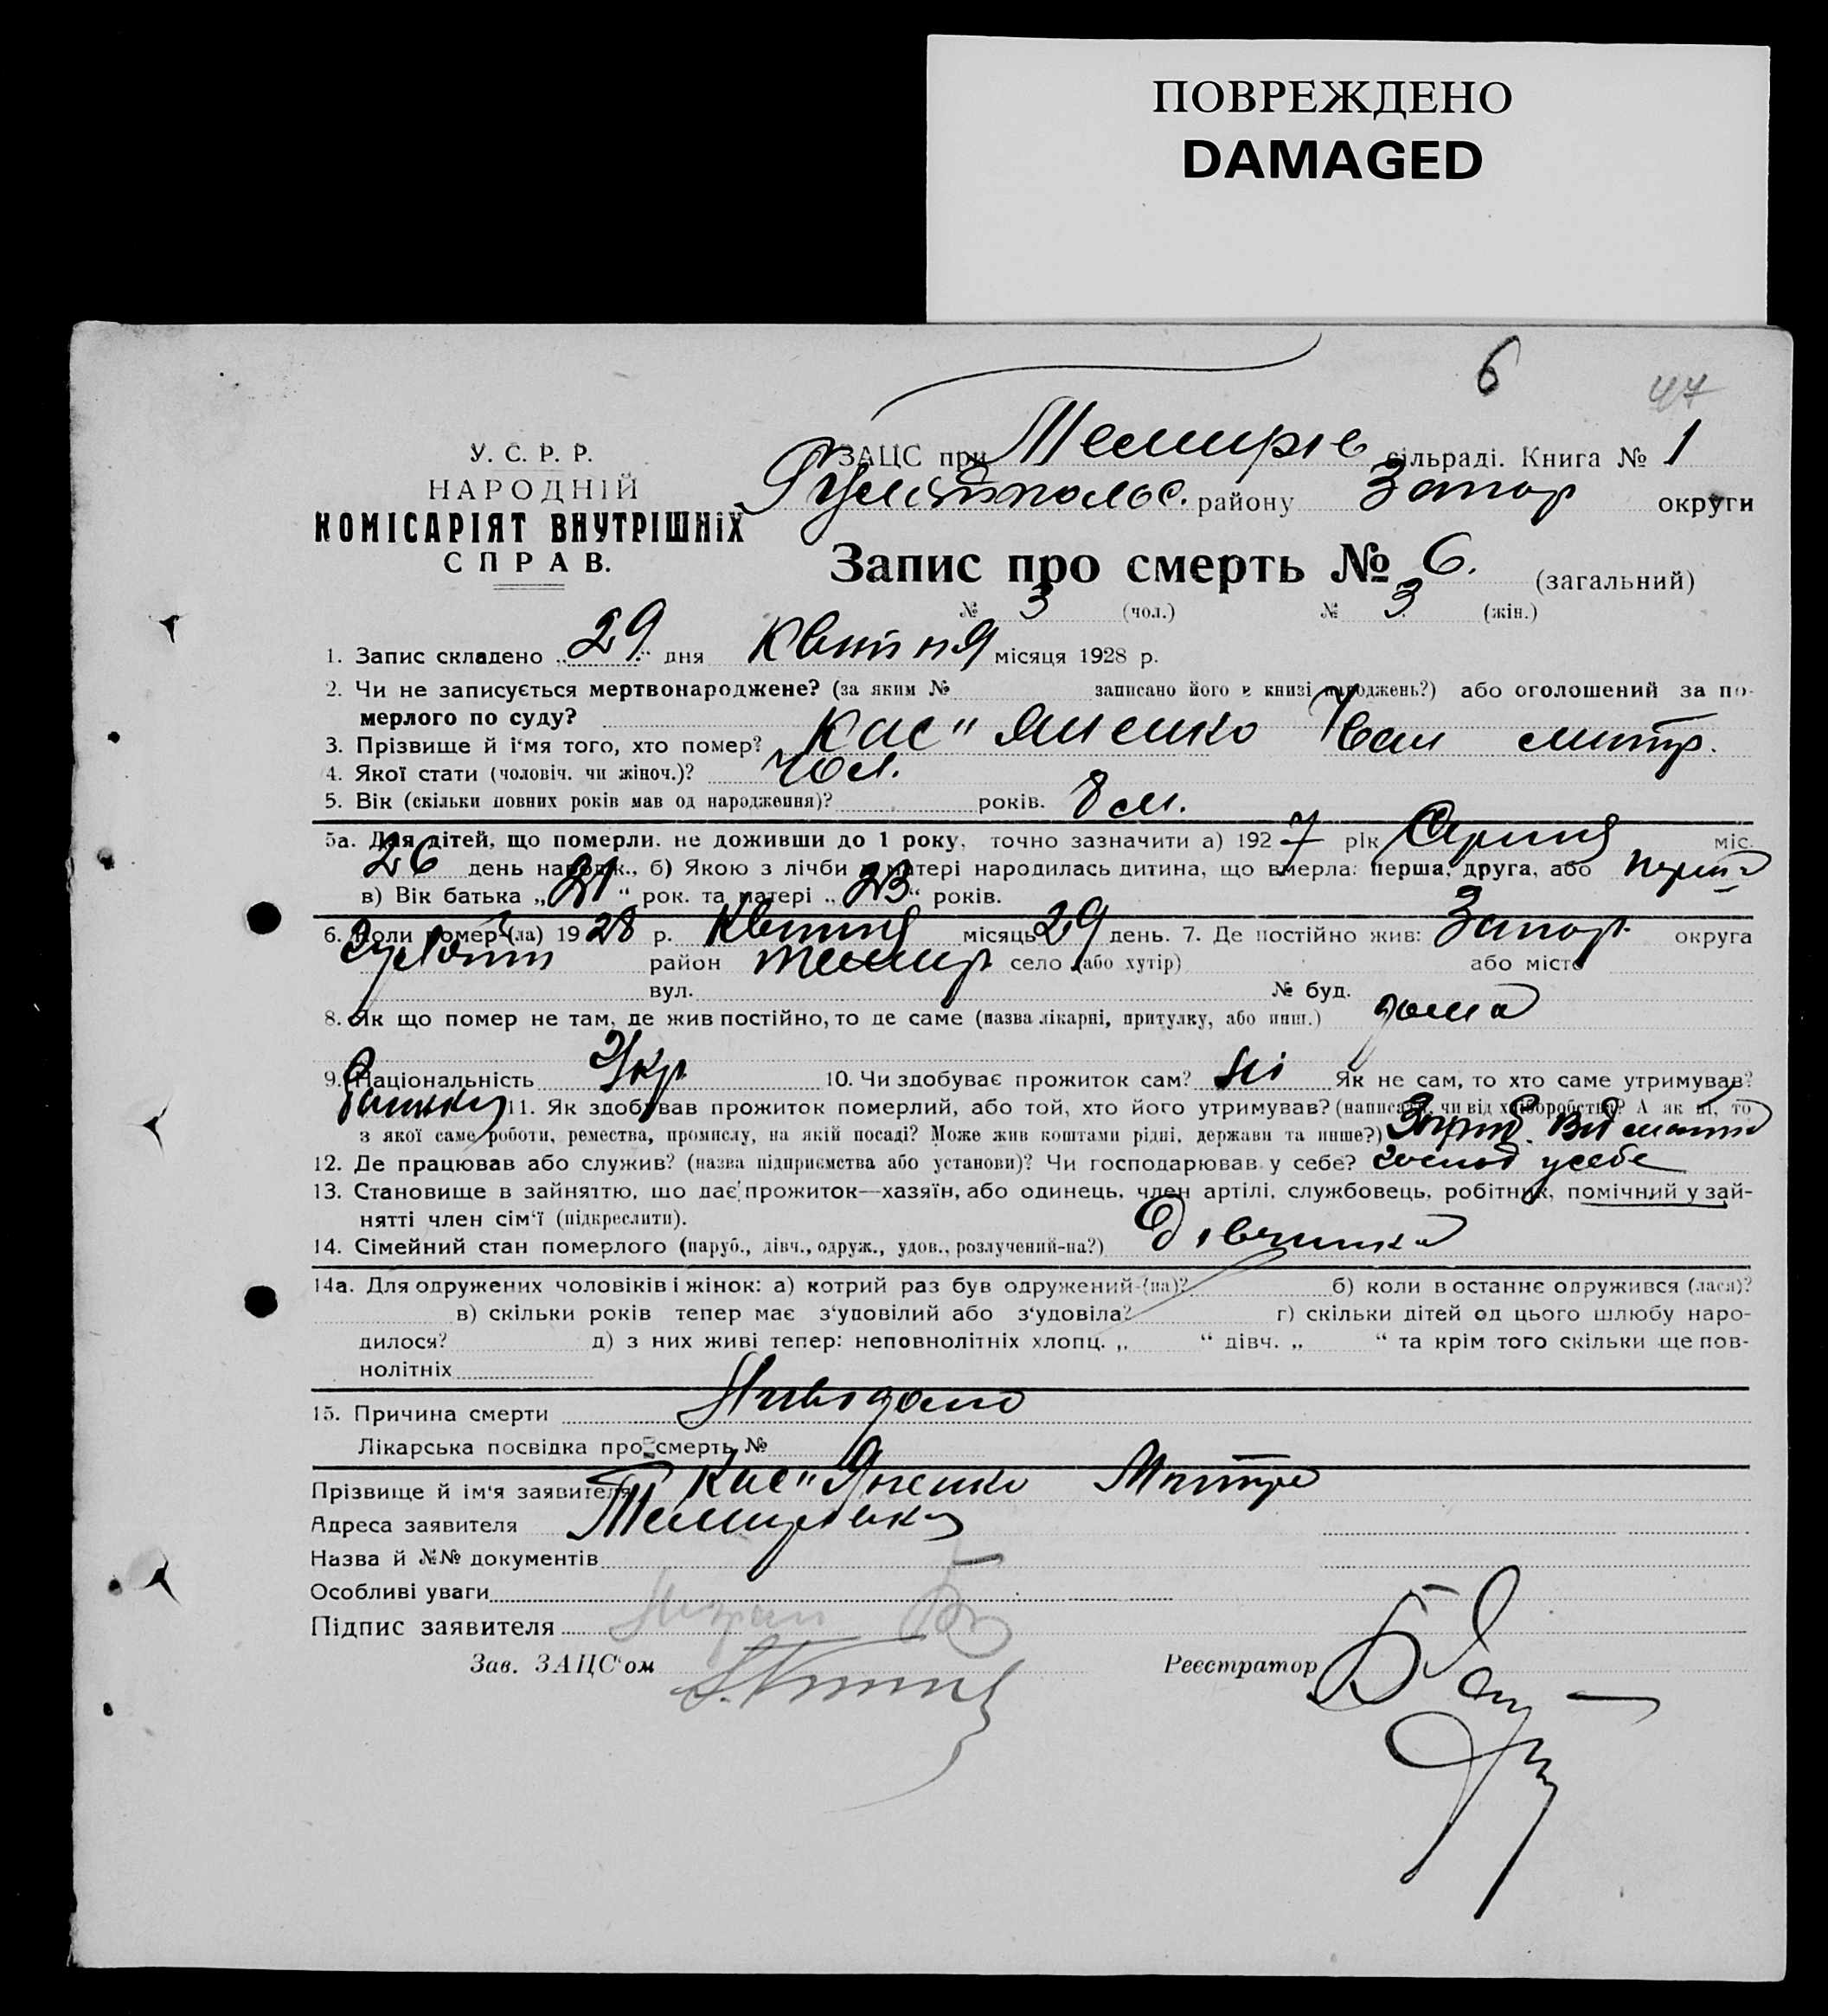 ПОВРЕЖДЕНО
DAMAGED
6
47
У. С. Р. Р.
НАРОДНІЙ
КОМІСАРІЯТ ВНУТРІШНІХ
СПРАВ.
ЗАЦС при Темирів сільраді. Книга № 1
району Запор округи
Запис про смерть № 6. (загальний)
№ 3 (чол.) № 3 (жін.)
1. Запис складено „29“ дня Квитня місяця 1928 р.
2. Чи не записується мертвонароджене? (за яким № записано його в книзі народжень?) або оголошений за по-
мерлого по суду?
3. Прізвище й ім'я того, хто помер? Кас"яненко Іван митр.
4. Якої стати (чоловіч. чи жіноч.)? чол.
5. Вік (скільки повних років мав од народження)? років. 8 м.
5а. Для дітей, що померли, не доживши до 1 року, точно зазначити а) 1927 рік Серпня міс.
26 день народж., б) Якою з лічби у матері народилась дитина, що вмерла: перша, друга, або
в) Вік батька „21“ рок. та матері „23“ років.
6. Коли помер (ла) 1928 р. Квитня місяць 29 день. 7. Де постійно жив: Запор. округа
район Темир. село (або хутір) або місто
вул. № буд.
8. Як що помер не там, де жив постійно, то де саме (назва лікарні, притулку, або инш.) дома
9. Національність Укр 10. Чи здобуває прожиток сам? Ні Як не сам, то хто саме утримував?
Батьки 11. Як здобував прожиток померлий, або той, хто його утримував? (написати, чи від хліборобства? А як ні, то
з якої саме роботи, ремества, промислу, на якій посаді? Може жив коштами рідні, держави та инше?)
12. Де працював або служив? (назва підприємства або установи)? Чи господарював у себе? господ у себе
13. Становище в зайняттю, що дає прожиток—хазяїн, або одинець, член артілі, службовець, робітник, помічний у зай-
нятті член сім'ї (підкреслити).
14. Сімейний стан померлого (паруб., дівч., одруж., удов., розлучений-на?) Дівчинка
14а. Для одружених чоловіків і жінок: а) котрий раз був одружений-(на)? б) коли востаннє одружився (лася)?
в) скільки років тепер має з'удовілий або з'удовіла? г) скільки дітей од цього шлюбу наро-
дилося? д) з них живі тепер: неповнолітніх хлопц. „ “ дівч. „ “ та крім того скільки ще пов-
нолітніх
15. Причина смерти Нивідомо
Лікарська посвідка про смерть №
Прізвище й ім'я заявителя Кас"яненко Митро
Адреса заявителя Темирівка
Назва й №№ документів
Особливі уваги
Підпис заявителя
Зав. ЗАЦС'ом Реєстратор